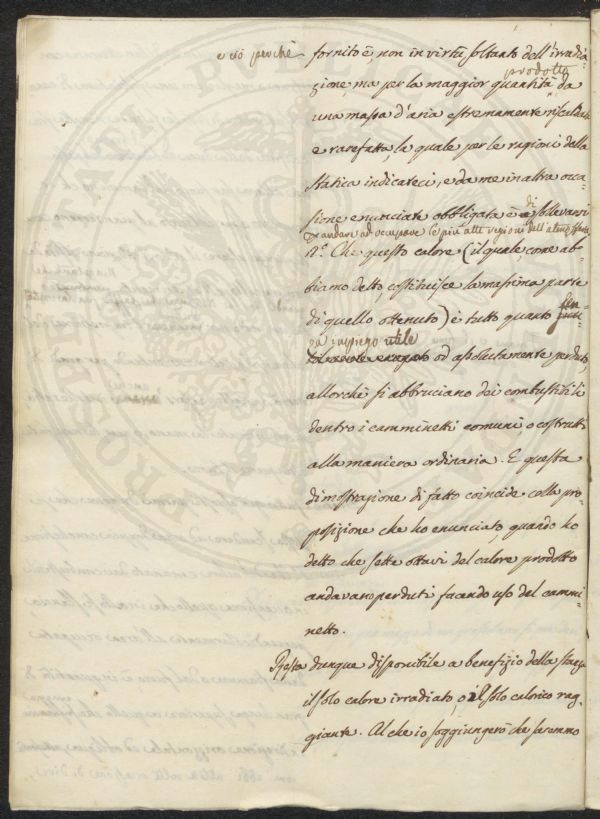 e ciò perchè fornito è, non in virtù soltanto dell'irradia-
prodotta
zione, ma per la maggior quantità da
una massa d'aria estremamente riscaldata
e rarefatta, la quale per le ragioni della
Statica indicateci, e da me in altra occa-
di
sione enunciate obbligata è a sollevarsi
ed andare ad occupare le più alte regioni dell'atmosfera
2.° Che questo calore (il quale come ab-
biamo detto, costituisce la massima parte
di quello ottenuto) è tutto quanto
impiego utile
od assolutamente perduto,
allorchè si abbruciano dei combustibili
dentro i camminetti comuni, o costrutti
alla maniera ordinaria. E questa
dimostrazione di fatto coincide colla pro-
posizione che ho enunciato, quando ho
detto che sette ottavi del calore prodotto
andavano perduti facendo uso del cammi-
netto.
Resta dunque disponibile a benefizio della stanza
il solo calore irradiato, o il solo calorico rag-
giante. Al che io soggiungerò che saremmo